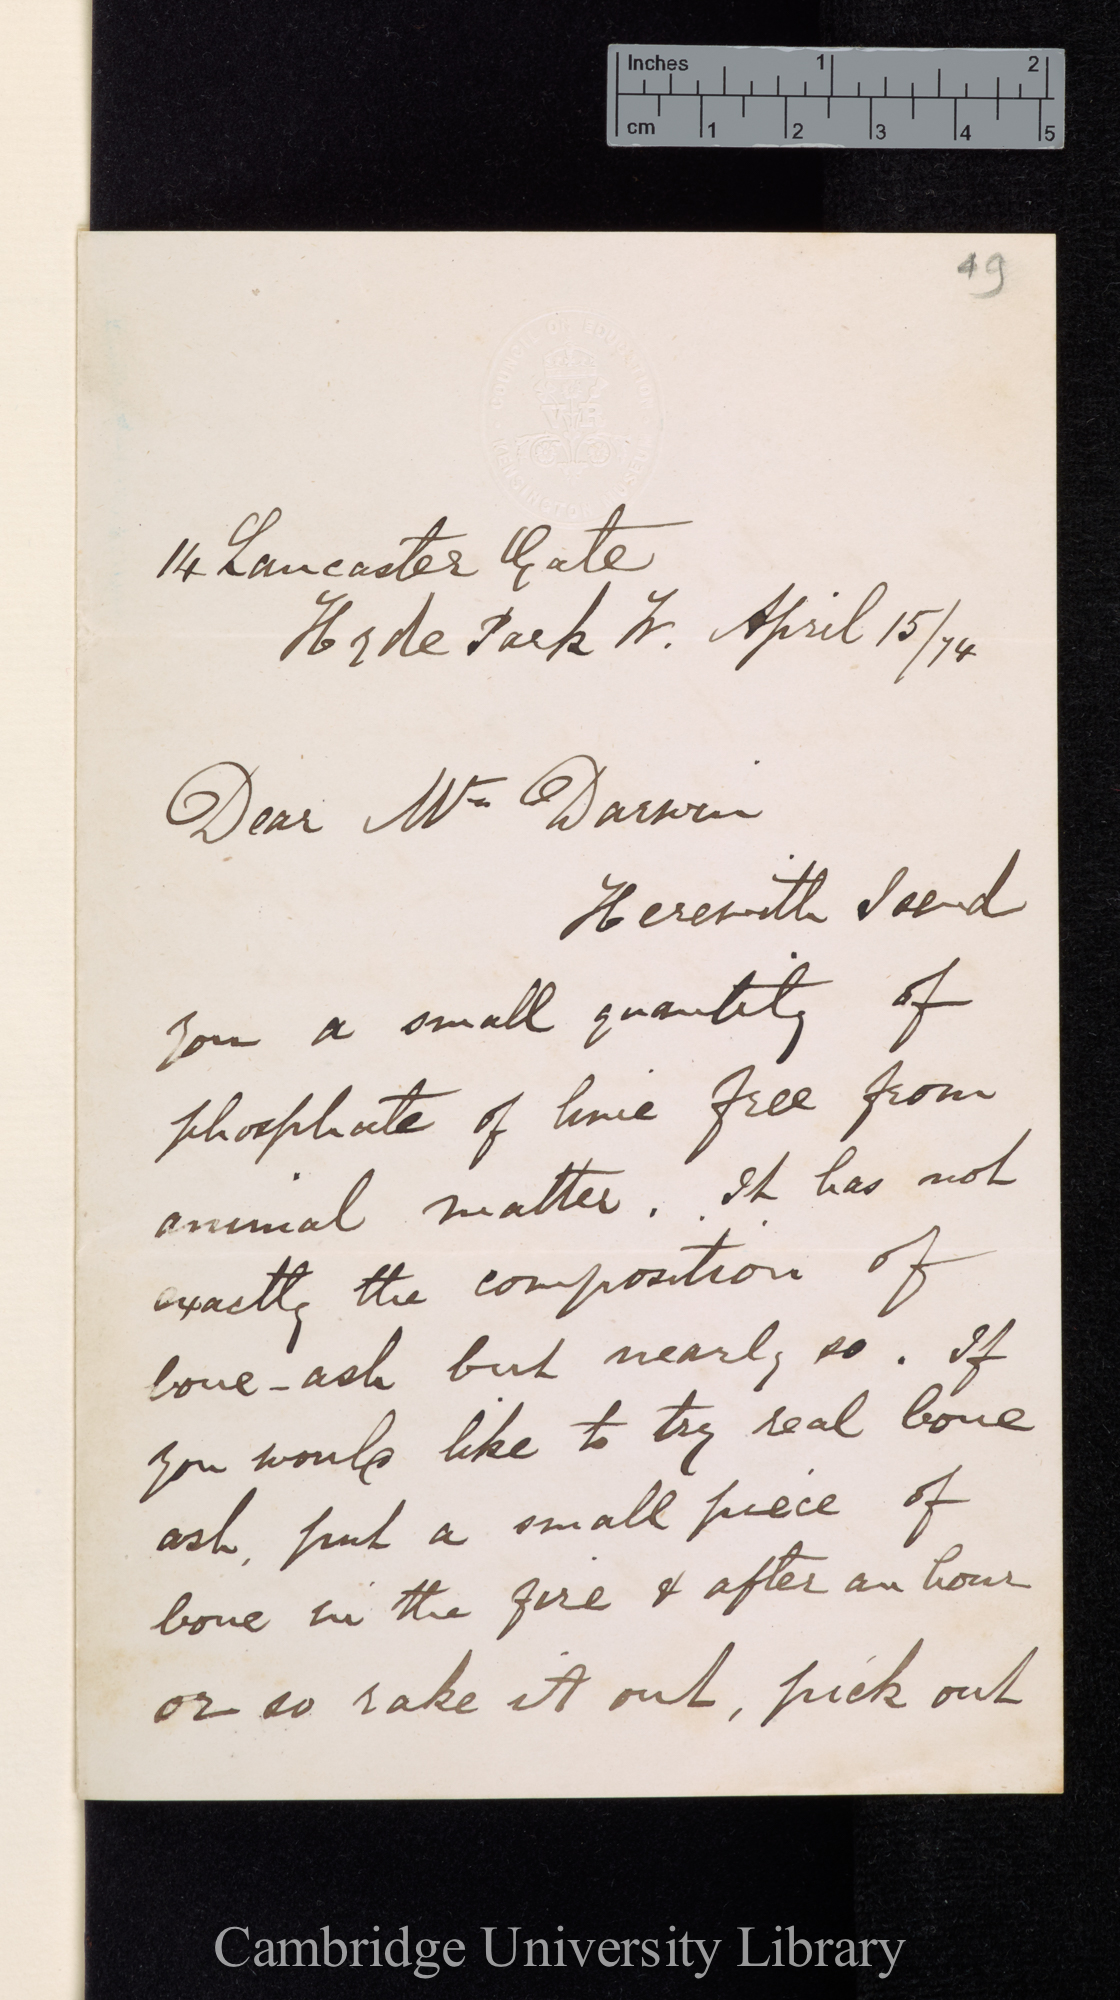 Inches 1 2
cm 1 2 3 4 5
49
COUNCIL OF EDUCATION
KENSINGTON MUSEUM
14 Lancaster Gate
Hyde Park W. April 15/74
Dear Mr. Darwin
Herewith I send
you a small quantity of
phosphate of lime free from
animal matter. It has not
exactly the composition of
bone-ash but nearly so. If
you would like to try real bone
ash, put a small piece of
bone in the fire & after an hour
or so rake it out, pick out
Cambridge University Library